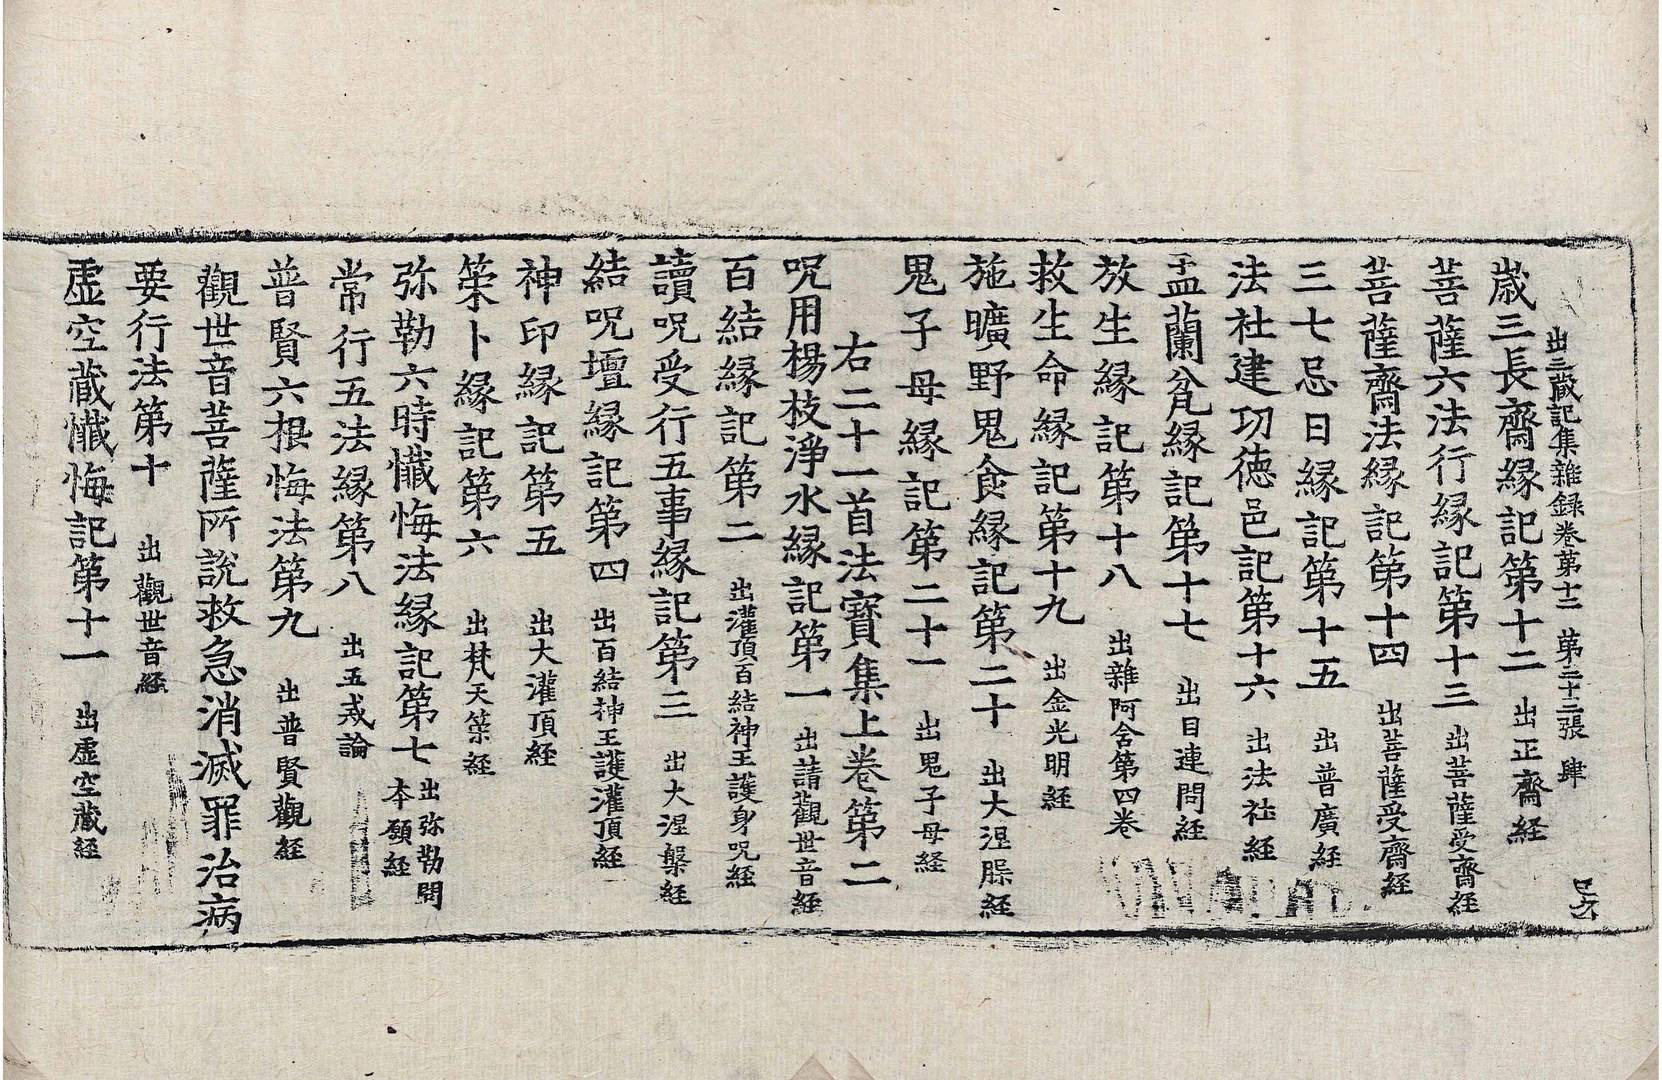 出三藏記集雜録卷第十二　第二十二張　肆
歳三長齋縁記第十二　出正齋経
菩薩六法行縁記第十三　出菩薩受齋経
菩薩齋法縁記第十四　出菩薩受齋経
三七忌日縁記第十五　出普廣経
法社建功徳邑記第十六　出法社経
盂蘭瓫縁記第十七　出目連問経
放生縁記第十八　出雜阿含第四卷
救生命縁記第十九　出金光明経
施曠野鬼食縁記第二十　出大涅槃経
鬼子母縁記第二十一　出鬼子母経
右二十一首法寶集上卷第二
呪用楊枝淨水縁記第一　出請觀世音経
百結縁記第二　出灌頂百結神王護身呪経
讀呪受行五事縁記第三　出大涅槃経
結呪壇縁記第四　出百結神王護灌頂経
神印縁記第五　出大灌頂経
筞卜縁記第六　出梵天筞経
弥勒六時懺悔法縁記第七　出弥勒問本願経
常行五法縁第八　出五戒論
普賢六根悔法第九　出普賢觀経
觀世音菩薩所説救急消滅罪治病
要行法第十　出觀世音経
虚空藏懺悔記第十一　出虚空藏経